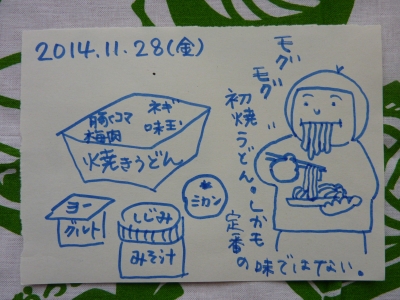 2014.11.28(金)
モグ
モグ
初焼うどん。しかも
定番の
味ではない。
豚バラコマ
梅肉
ネギ
味玉
火焼きうどん
ヨー
グルト
しじみ
みそ汁
ミカン